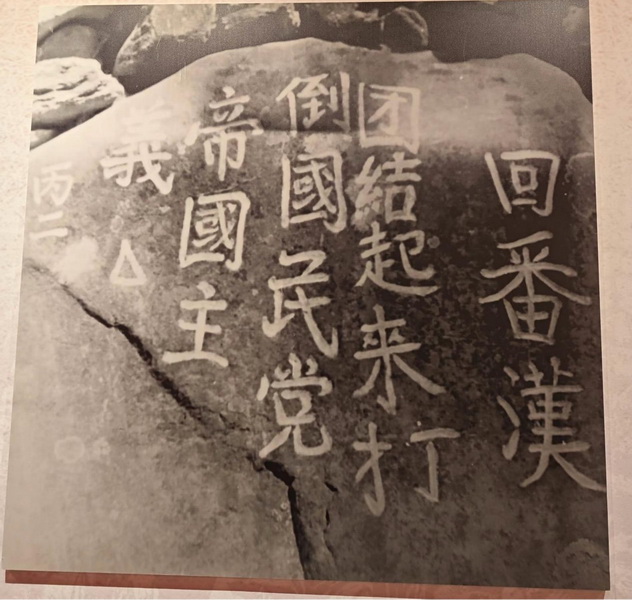 回番漢
团結起来打
倒國民党
帝國主
義△
丙二